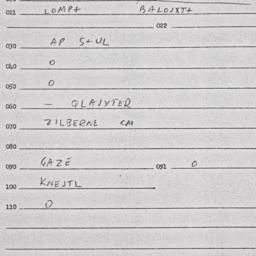 021 LOMP+ BALOJXT+
022
030 AP S+UL
040 0
050 0
060 — QLAJYTER
070 ZILBERNE CM
080
090 GAZE 091 0
100 KNEJTL
110 0